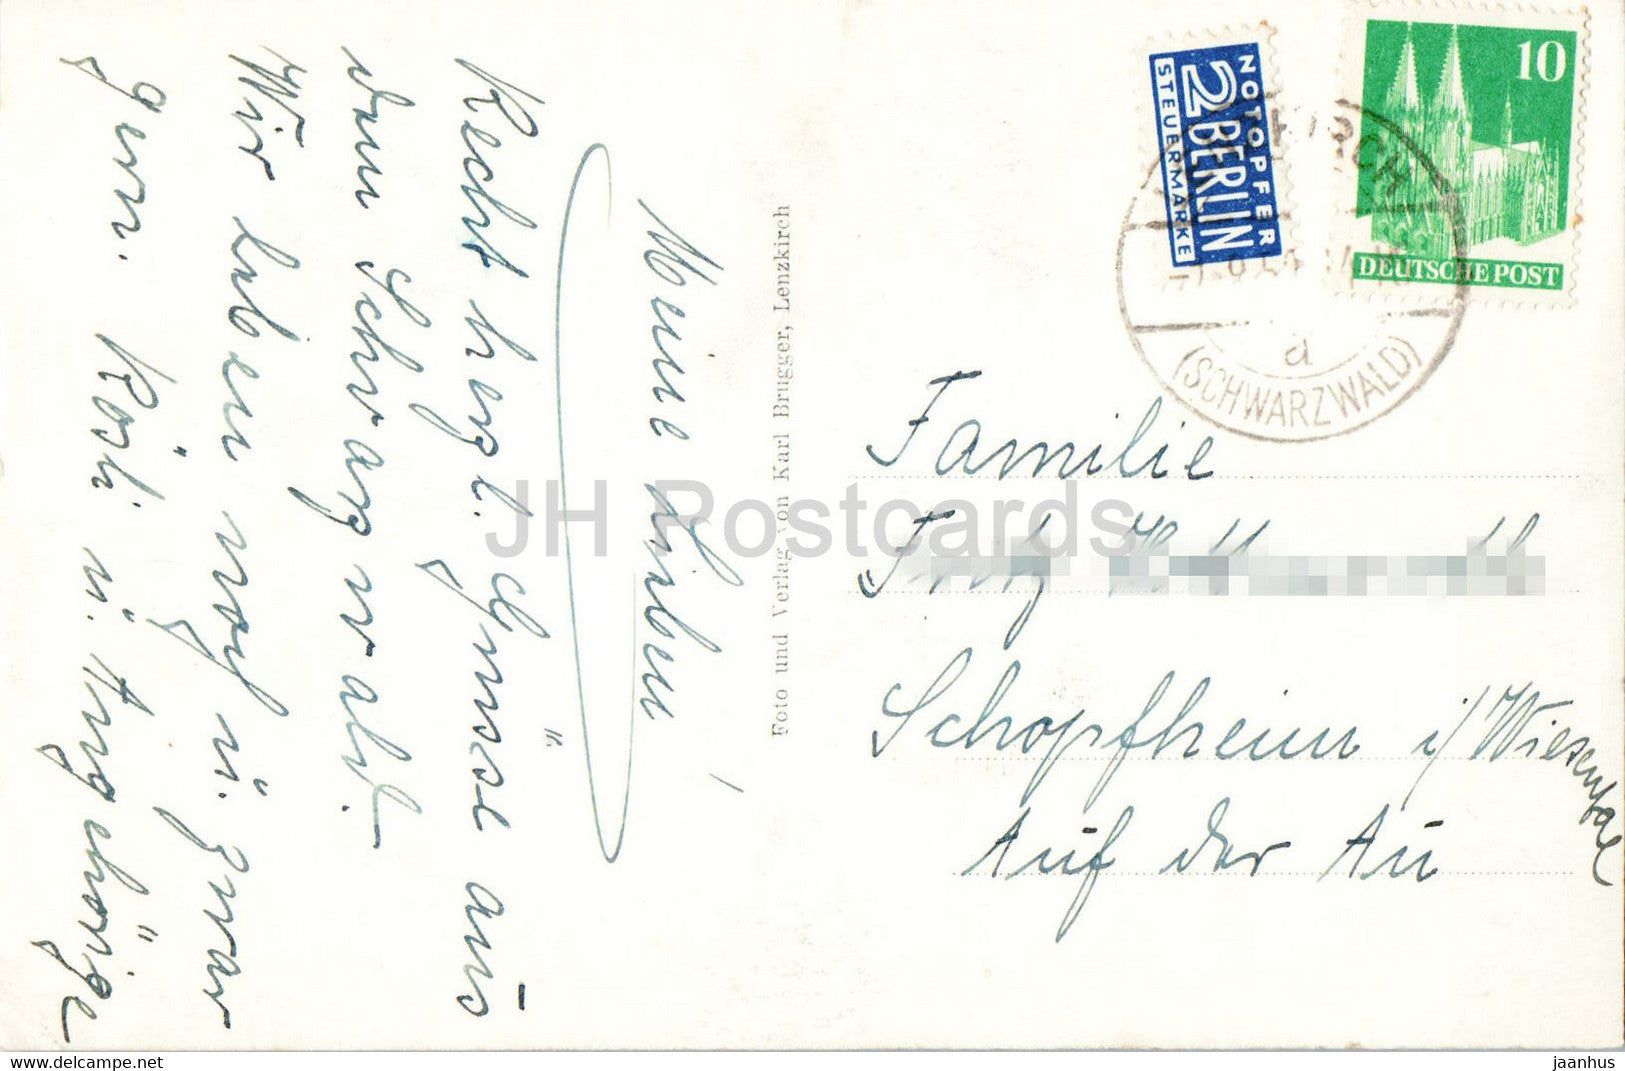 Meine Lieben
Recht herzl. Grüsse aus
dem Schwarzwald.
Wir leben noch u. zwar
gern. Rösli u. Angehörige
Foto und Verlag von Karl Brugger, Lenzkirch
NOTOPFER
2 BERLIN
STEUERMARKE
10
DEUTSCHE POST
a
(SCHWARZWALD)
Familie
Fritz
Schopfheim i/Wiesental
Auf der Au
JH Postcards
hippostcard.com
jaanhus